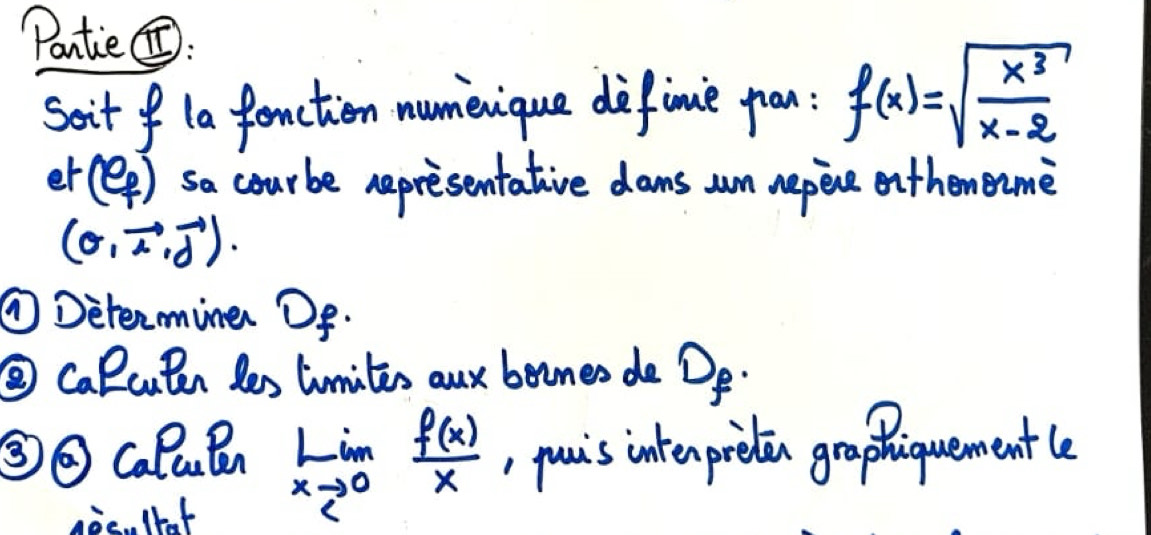 Partie II :
Soit f la fonction numèrique dèfinie par : f(x)=√(x³/(x-2))
et (Cf) sa courbe reprèsentative dans un repère orthonormè
(o, i⃗, j⃗).
① Dèterminer Df.
② Calculer les limites aux bornes de Df.
③ ⓐ Calculer Lim x→0 < f(x)/x , puis interprèter graphiquement le
rèsultat